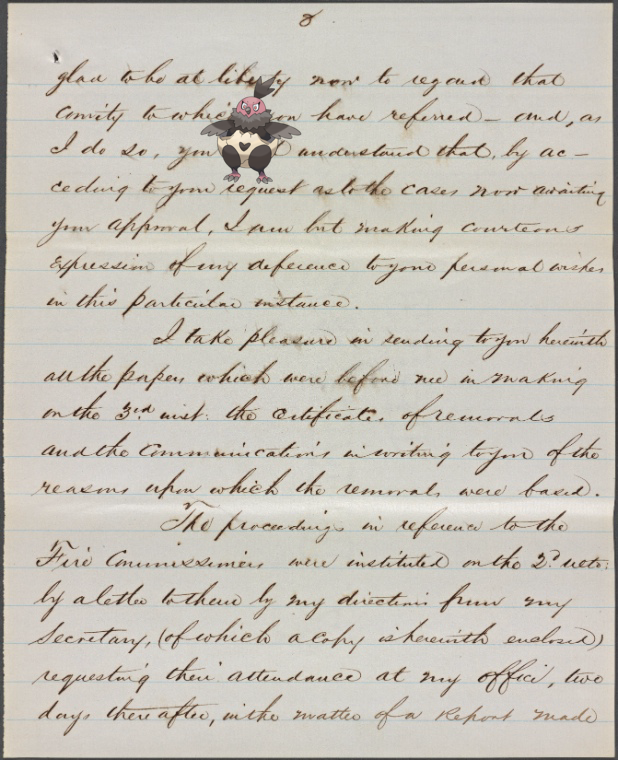 8
glad to be at liberty now to regard that
comity to which you have referred – and, as
I do so, you understand that, by ac–
ceding to your request as to the cases now awaiting
your approval, I am but making courteous
expression of my deference to your personal wishes
in this particular instance.
I take pleasure in sending to you herewith
all the papers which were before me in making
on the 3rd inst: the certificates of removals
and the communications in writing to you of the
reasons upon which the removals were based.
The proceedings in reference to the
Fire Commissioners were instituted on the 2d ulto:
by a letter to them by my direction from my
Secretary, (of which a copy is herewith enclosed)
requesting their attendance at my office, two
days thereafter, in the matter of a Report made